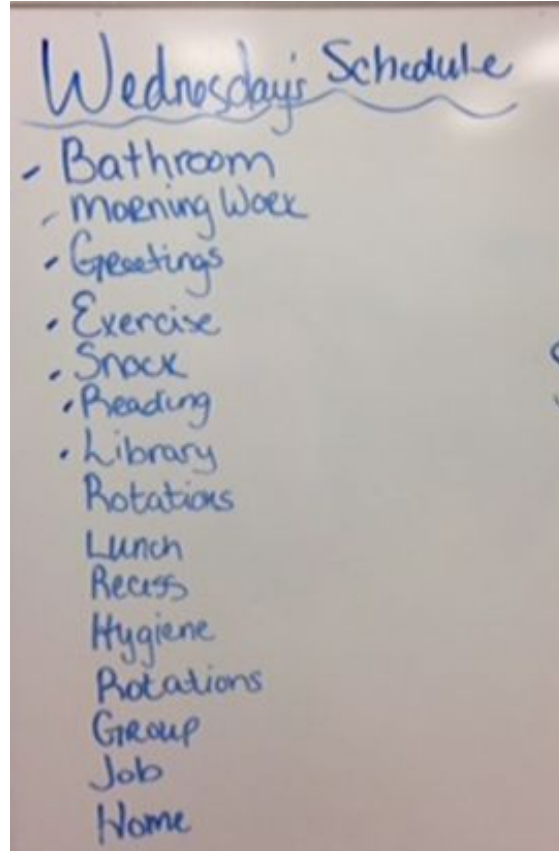 Wednesday's Schedule
- Bathroom
- Morning Work
- Greetings
- Exercise
- Snack
- Reading
- Library
Rotations
Lunch
Recess
Hygiene
Rotations
Group
Job
Home